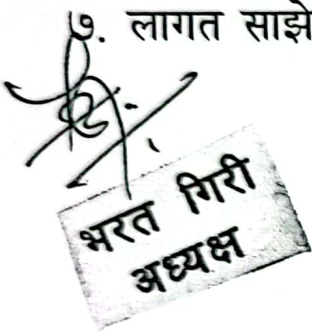 ७. लागत साझे
भरत गिरी
अध्यक्ष